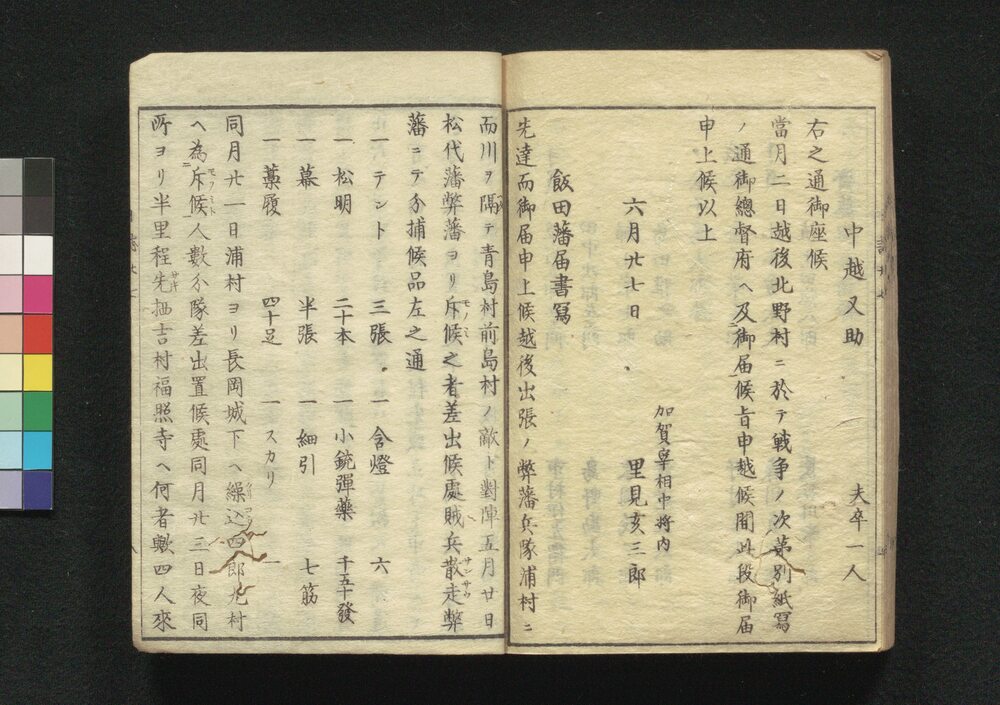 中越又助　夫卒一人
右之通御座候
當月二日越後北野村ニ於テ戦争ノ次第別紙寫
ノ通御總督府ヘ及御届候旨申越候間此段御届
申上候以上
加賀宰相中将内
六月廿七日　里見亥三郎
飯田藩届書寫
先達而御届申上候越後出張ノ弊藩兵隊浦村ニ
而川ヲ隔テ青島村前島村ノ敵ト對陣五月廿日
松代藩弊藩ヨリ斥候之者差出候處賊兵散走弊
モノミ
サンサウ
藩ニテ分捕候品左之通
一テント　三張　一含燈　六
一松明　二十本　一小銃彈薬　千五十發
一幕　半張　一細引　七筋
一藁履　四十足　一スカリ　一
同月廿一日浦村ヨリ長岡城下ヘ繰込四郎丸村
クリコミ
ヘ為斥候人數分隊差出置候處同月廿三日夜同
モノミ
所ヨリ半里程先抽吉村福照寺ヘ何者歟四人來
サキ